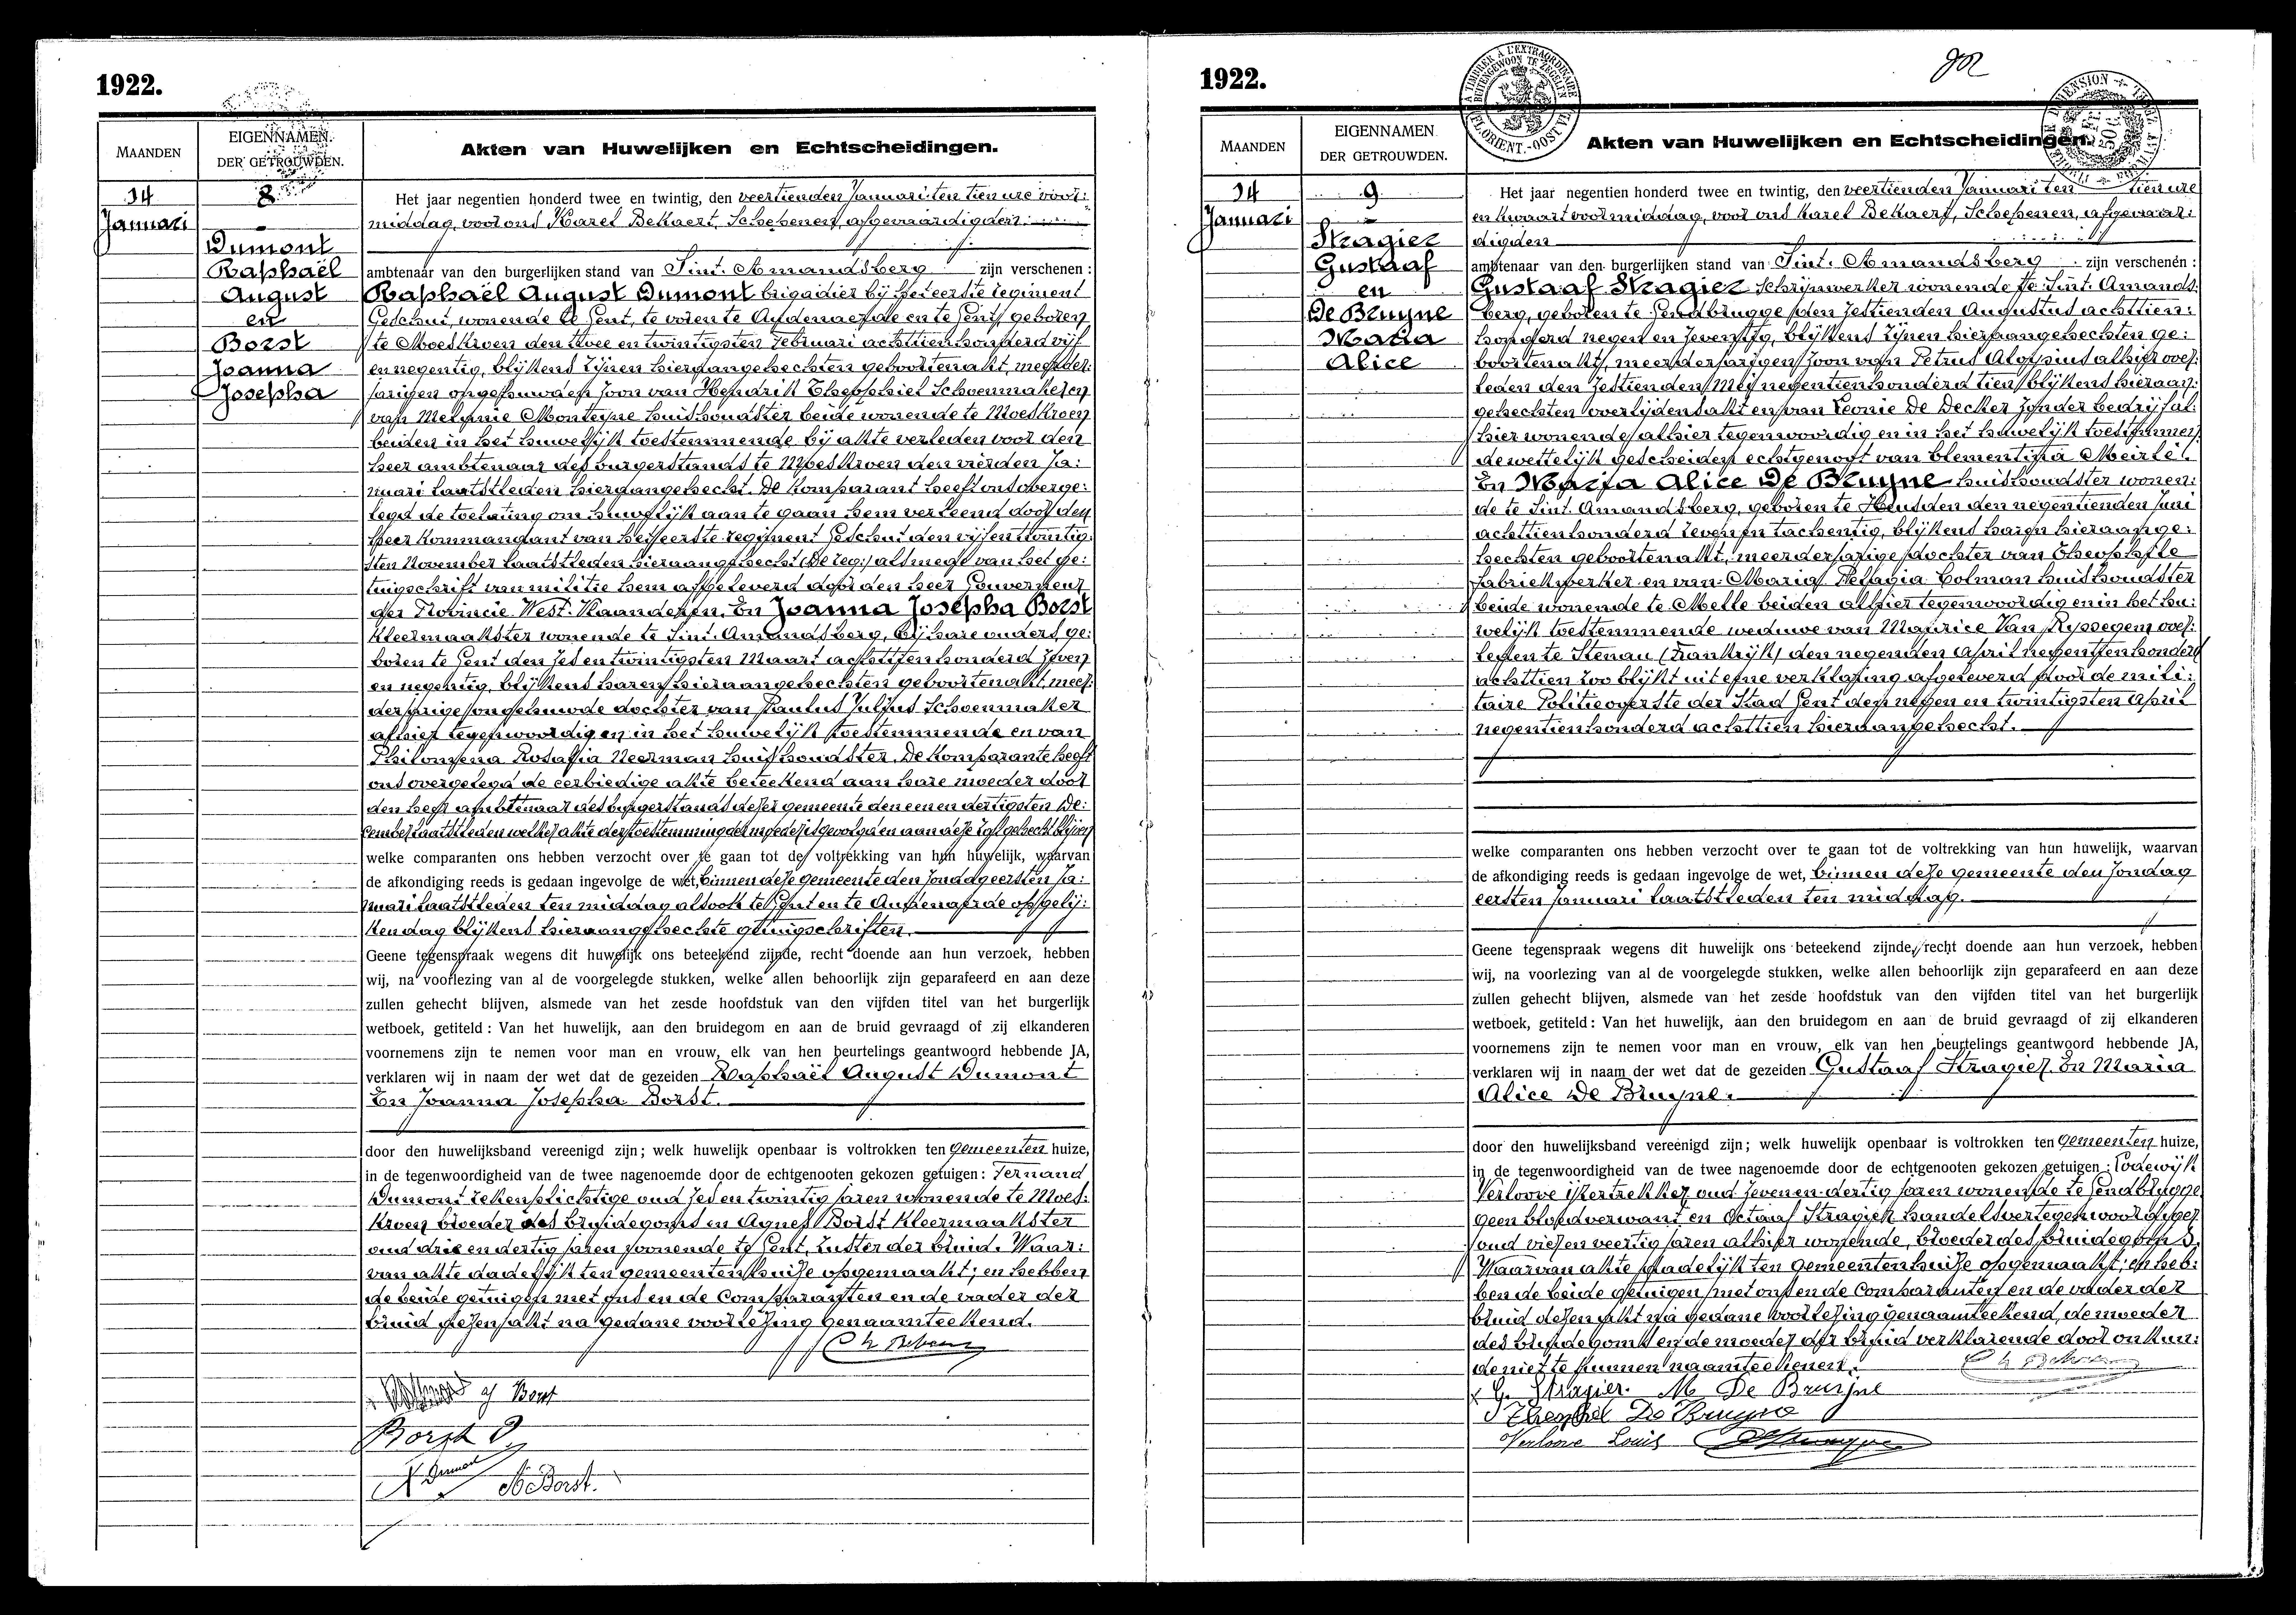 1922.
MAANDEN
EIGENNAMEN
DER GETROUWDEN.
Akten van Huwelijken en Echtscheidingen.
14
Januari
8
Dumont
Raphaël
August
en
Borst
Joanna
Josepha
Het jaar negentien honderd twee en twintig, den veertienden Januari ten tien ure voor:
middag, voor ons Karel Bekaert, Schepenen, afgevaardigden
ambtenaar van den burgerlijken stand van Sint. Amandsberg zijn verschenen :
Raphaël August Dumont brigadier bij het eerste regiment
Geschut, wonende te Gent, te voren te Audenaerde en te Gent, geboren
te Moeskroen den twee en twintigsten Februari achttienhonderd vijf
en negentig, blijkens zijnen hieraangehechten geboortenakt, meerder:
jarigen ongehuwden zoon van Hendrik Theophiel Schoenmaker en
van Melanie Monteyne huishoudster beide wonende te Moeskroen
beiden in het huwelijk toestemmende bij akte verleden voor den
heer ambtenaar des burgerstands te Moeskroen den vierden Ja:
nuari laatstleden hieraangehecht. De Komparant heeft ons overge:
legd de toelating om huwelijk aan te gaan hem verleend door den
Heer Kommandant van het eerste regiment Geschut den vijf en twintig:
sten November laatstleden hieraangehecht (De reg:) alsmede van het ge:
tuigschrift van militie hem afgeleverd door den heer Gouverneur
der Provincie West. Vlaanderen. En Joanna Josepha Borst
kleermaakster wonende te Sint. Amandsberg, bij hare ouders, ge:
boren te Gent den zes en twintigsten Maart achttienhonderd zeven
en negentig, blijkens haren hieraangehechten geboortenakt, meer:
derjarige ongehuwde dochter van Paulus Julius Schoenmaker
alhier tegenwoordig en in het huwelijk toestemmende en van
Philomena Rosalia Neerman huishoudster. De Komparante heeft
ons overgelegd de eerbiedige akte beteekend aan hare moeder door
den heer ambtenaar des burgerstands dezer gemeente den een en dertigsten De:
cember laatstleden welke akte der toestemming der moeder is gevolgd en aan deze zal gehecht blijven
welke comparanten ons hebben verzocht over te gaan tot de voltrekking van hun huwelijk, waarvan
de afkondiging reeds is gedaan ingevolge de wet, binnen deze gemeente den zondag eersten Ja:
nuari laatstleden ten middag alsook te Gent en te Audenaerde op gelij:
ken dag blijkens hieraangehechte getuigschriften.
Geene tegenspraak wegens dit huwelijk ons beteekend zijnde, recht doende aan hun verzoek, hebben
wij, na voorlezing van al de voorgelegde stukken, welke allen behoorlijk zijn geparafeerd en aan deze
zullen gehecht blijven, alsmede van het zesde hoofdstuk van den vijfden titel van het burgerlijk
wetboek, getiteld : Van het huwelijk, aan den bruidegom en aan de bruid gevraagd of zij elkanderen
voornemens zijn te nemen voor man en vrouw, elk van hen beurtelings geantwoord hebbende JA,
verklaren wij in naam der wet dat de gezeiden Raphaël August Dumont
En Joanna Josepha Borst.
door den huwelijksband vereenigd zijn ; welk huwelijk openbaar is voltrokken ten Gemeenten huize,
in de tegenwoordigheid van de twee nagenoemde door de echtgenooten gekozen getuigen : Fernand
Dumont rekenplichtige oud zes en twintig jaren wonende te Moes:
kroen broeder des bruidegoms en Agnes Borst kleermaakster
oud drie en dertig jaren wonende te Gent, zuster der bruid. Waar:
van akte dadelijk ten gemeentenhuize opgemaakt; en hebben
de beide getuigen met ons en de Comparanten en de vader der
bruid dezen akt na gedane voorlezing genaamteekend.
Borst
Borst
Dumont
A. Borst.
1922.
902
MAANDEN
EIGENNAMEN
DER GETROUWDEN.
Akten van Huwelijken en Echtscheidingen.
14
Januari
9
Stragier
Gustaaf
en
De Bruyne
Maria
Alice
Het jaar negentien honderd twee en twintig, den veertienden Januari ten tien ure
en kwaart voormiddag, voor ons Karel Bekaert, Schepenen, afgevaar:
digden
ambtenaar van den burgerlijken stand van Sint. Amandsberg zijn verschenen :
Gustaaf Stragier Schrijnwerker wonende te Sint. Amands:
berg, geboren te Gendbrugge den zestienden Augustus achttien:
honderd negen en zeventig, blijkens zijnen hieraangehechten ge:
boortenakt, meerderjarigen zoon van Petrus Aloysius alhier over:
leden den zestienden Mei negentienhonderd tien blijkens hieraan:
gehechten overlijdensakt en van Leonie De Decker zonder bedrijf al:
hier wonende alhier tegenwoordig en in het huwelijk toestemmen:
de wettelijk gescheiden echtgenoot van Clementina Meirte.
En Maria Alice De Bruyne huishoudster wonen:
de te Sint. Amandsberg, geboren te Heusden den negentienden Juni
achttienhonderd zeven en tachentig, blijkens haren hieraange:
hechten geboortenakt, meerderjarige dochter van Theophile
fabriekwerker en van Maria Pelagia Colman huishoudster
beide wonende te Melle beiden alhier tegenwoordig en in het hu:
welijk toestemmende weduwe van Maurice Van Ryssegem over:
leden te Stenau (Frankrijk) den negenden April negentienhonderd
achttien zoo blijkt uit eene verklaring afgeleverd door de mili:
taire Politieoverste der Stad Gent den negen en twintigsten April
negentienhonderd achttien hieraangehecht.
welke comparanten ons hebben verzocht over te gaan tot de voltrekking van hun huwelijk, waarvan
de afkondiging reeds is gedaan ingevolge de wet, binnen deze gemeente den zondag
eersten Januari laatstleden ten middag.
Geene tegenspraak wegens dit huwelijk ons beteekend zijnde, recht doende aan hun verzoek, hebben
wij, na voorlezing van al de voorgelegde stukken, welke allen behoorlijk zijn geparafeerd en aan deze
zullen gehecht blijven, alsmede van het zesde hoofdstuk van den vijfden titel van het burgerlijk
wetboek, getiteld : Van het huwelijk, aan den bruidegom en aan de bruid gevraagd of zij elkanderen
voornemens zijn te nemen voor man en vrouw, elk van hen beurtelings geantwoord hebbende JA,
verklaren wij in naam der wet dat de gezeiden Gustaaf Stragier En Maria
Alice De Bruyne.
door den huwelijksband vereenigd zijn ; welk huwelijk openbaar is voltrokken ten Gemeenten huize,
in de tegenwoordigheid van de twee nagenoemde door de echtgenooten gekozen getuigen : Lodewijk
Verloove ijzertrekker oud zeven en dertig jaren wonende te Gendbrugge
geen bloedverwant en Octaaf Stragier handelsvertegenwoordiger
oud vier en veertig jaren alhier wonende, broeder des bruidegoms.
Waarvan akte dadelijk ten gemeentenhuize opgemaakt; en heb:
ben de beide getuigen met ons en de Comparanten en de vader der
bruid dezen akt na gedane voorlezing genaamteekend, de moeder
des bruidegoms en de moeder der bruid verklarende door onkun:
de niet te kunnen naamteekenen.
G. Stragier. M De Bruijne
Theophiel De Bruyne
Verloove Louis